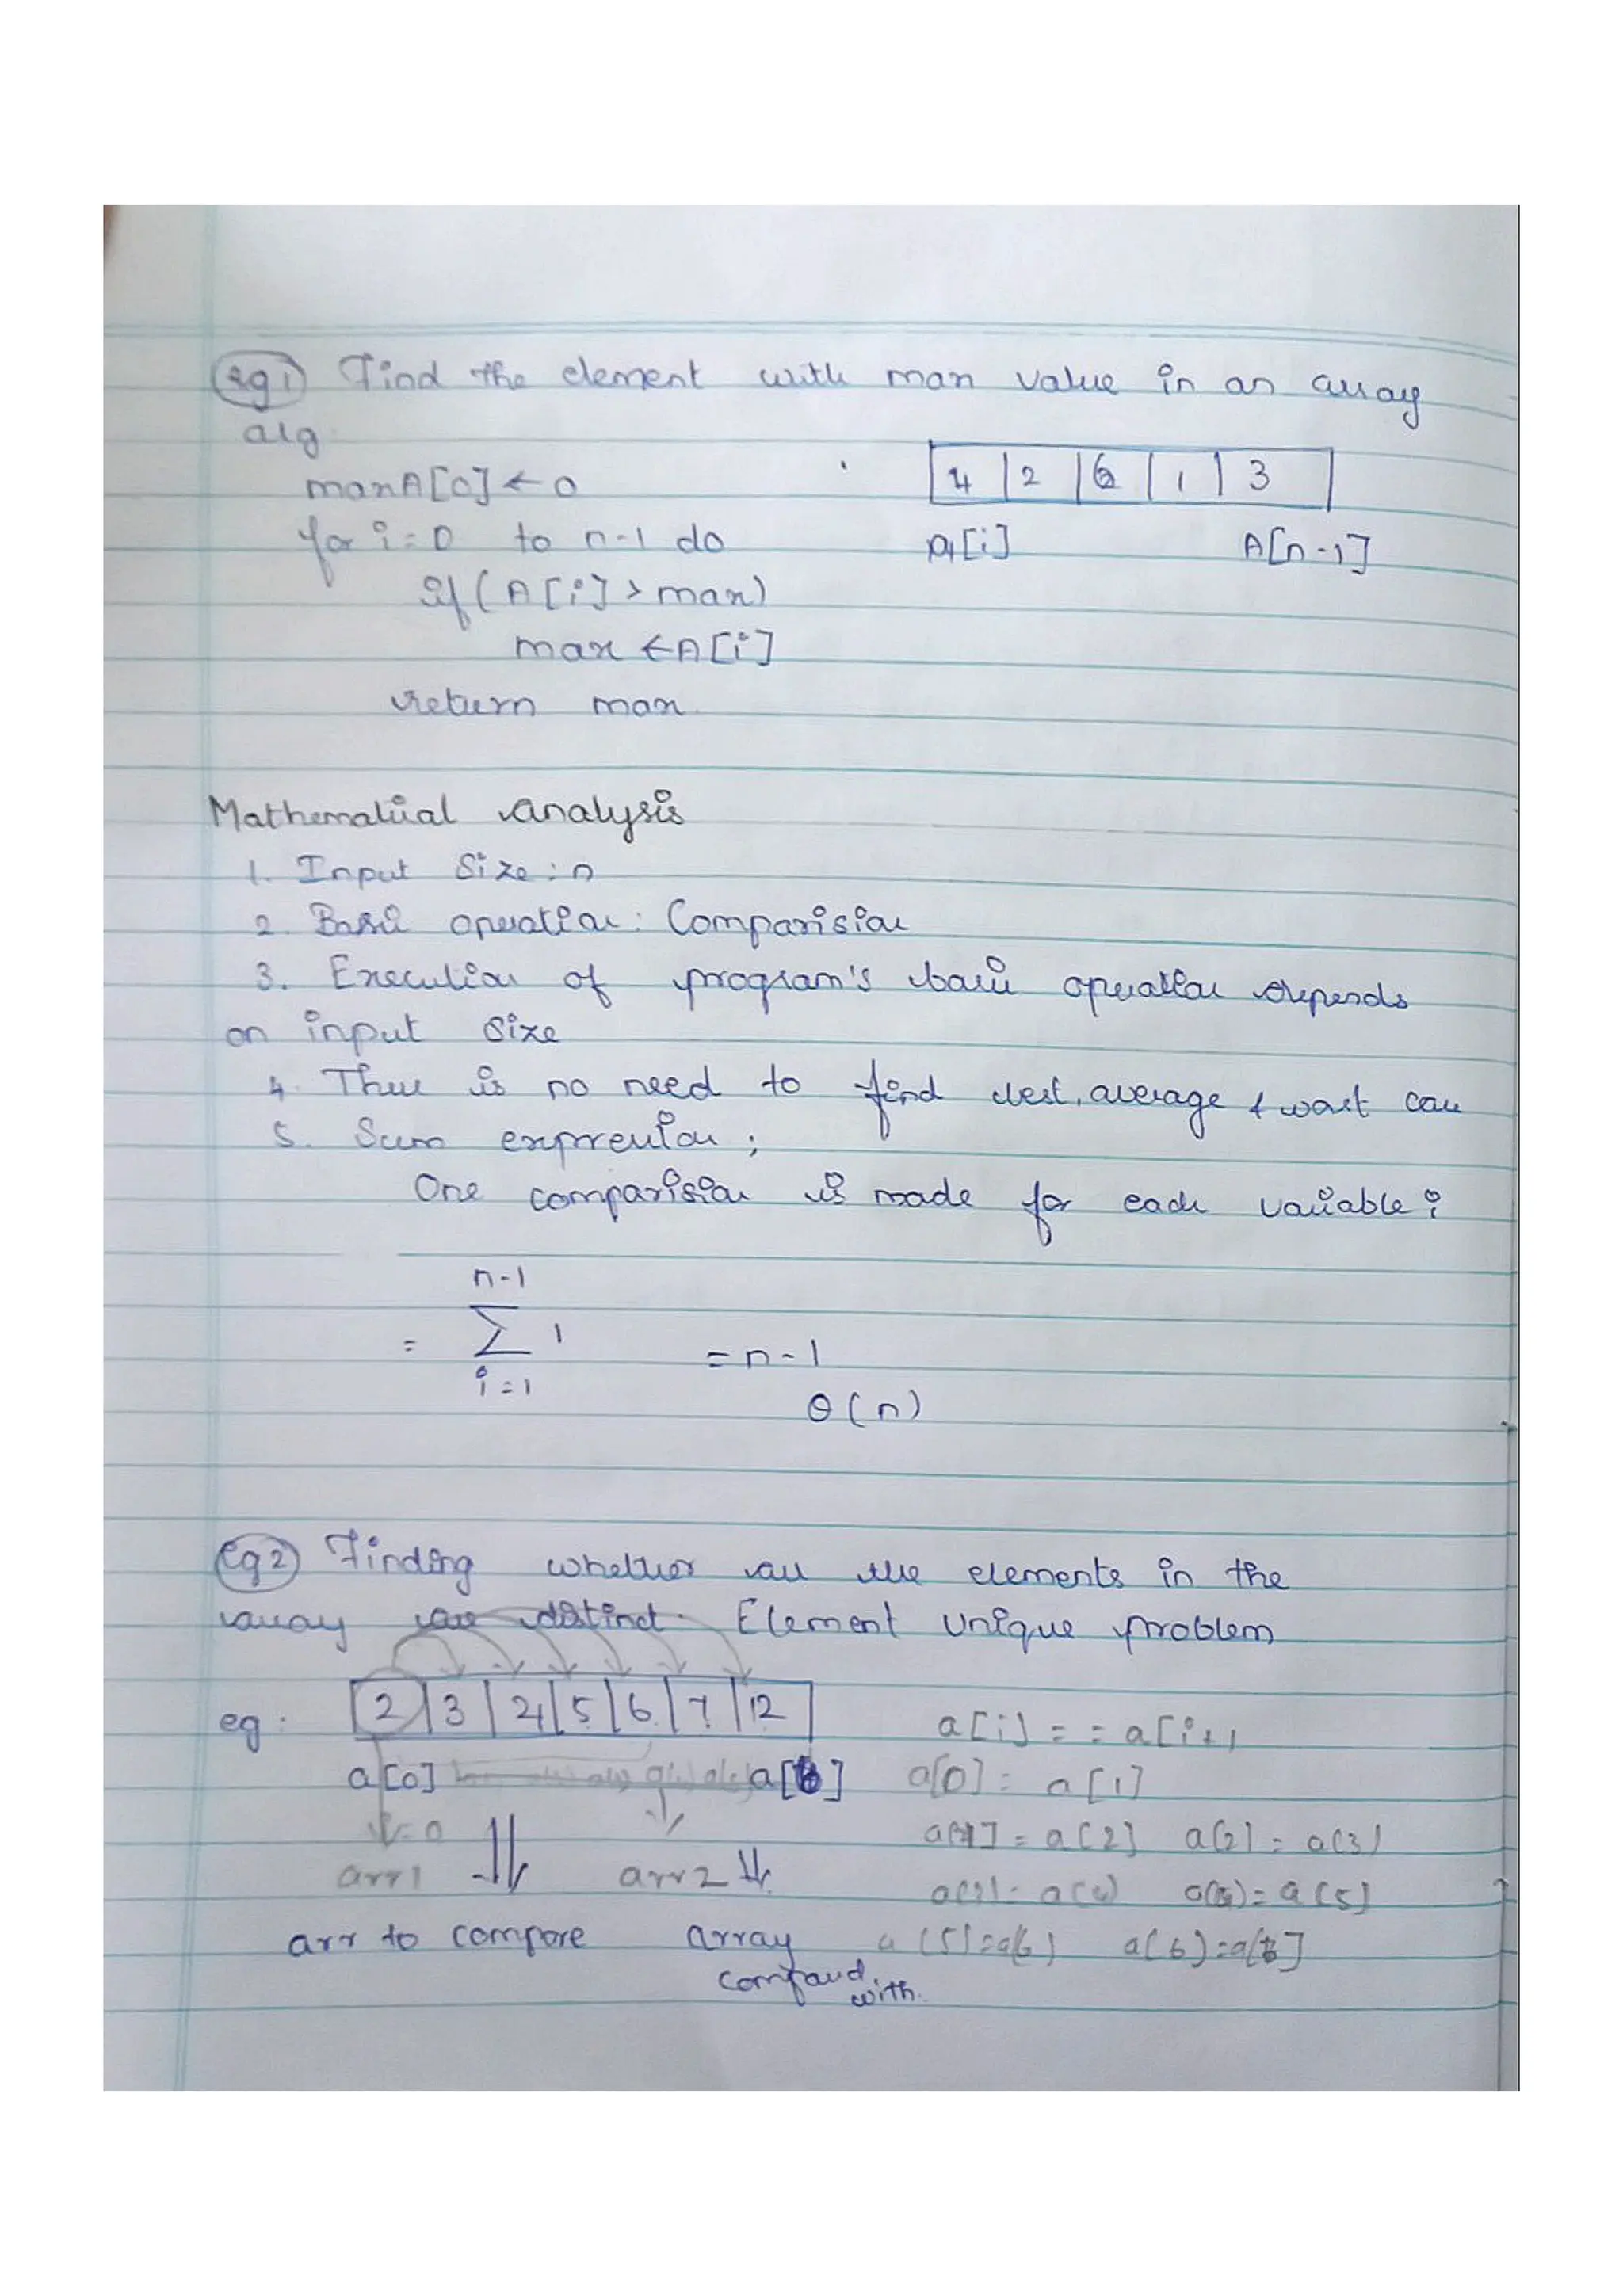 eg1 Find the element with max value in an array
alg
maxA[0] ← 0
4 | 2 | 6 | 1 | 3
for i=0 to n-1 do
A[i] A[n-1]
if (A[i] > max)
max ← A[i]
return max
Mathematical analysis
1. Input Size : n
2. Basic operation : Comparision
3. Execution of program's basic operation depends
on input size
4. There is no need to find best, average & worst case
5. Sum expression ;
One comparision is made for each variable i
n-1
= Σ 1 = n-1
i=1
θ(n)
eg2 Finding whether all the elements in the
array are distinct. Element Unique problem
eg : 2 | 3 | 4 | 5 | 6 | 7 | 12
a[i] == a[i+1
a[0] a[6] a[0] = a[1]
i=0
a[1] = a[2] a[2] = a[3]
arr1 arr2
a[3] = a[4] a[4] = a[5]
arr to compare array
a[5] = a[6] a[6] = a[6]
compared
with